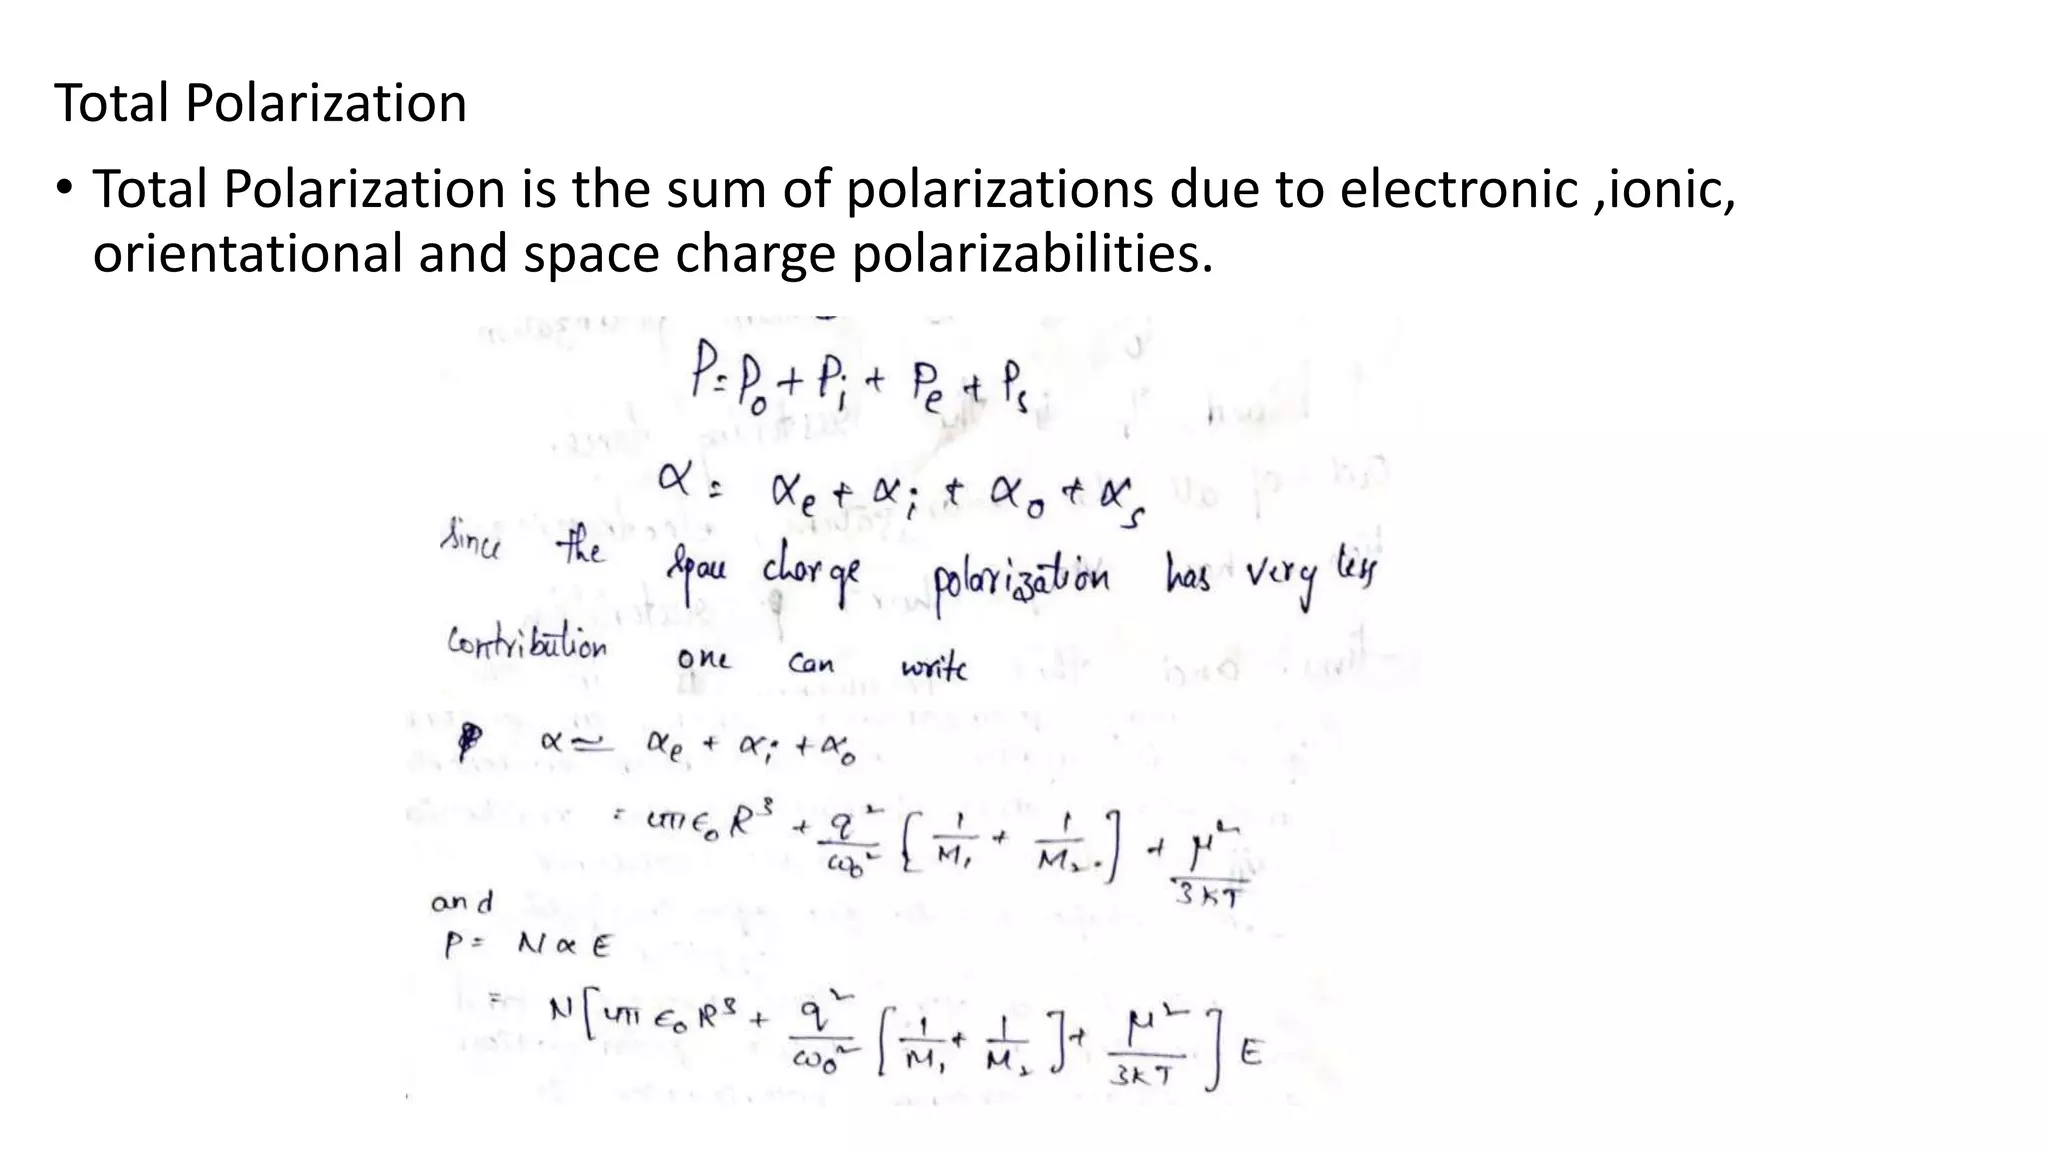 Total Polarization
• Total Polarization is the sum of polarizations due to electronic ,ionic,
orientational and space charge polarizabilities.
P = P₀ + Pᵢ + Pₑ + Pₛ
α = αₑ + αᵢ + α₀ + αₛ
since the space charge polarization has very less
contribution one can write
α ≃ αₑ + αᵢ + α₀
= 4πϵ₀R³ + q²/ω₀² [1/M₁ + 1/M₂] + μ²/3KT
and
P = NαE
= N[4πϵ₀R³ + q²/ω₀² [1/M₁ + 1/M₂] + μ²/3KT] E